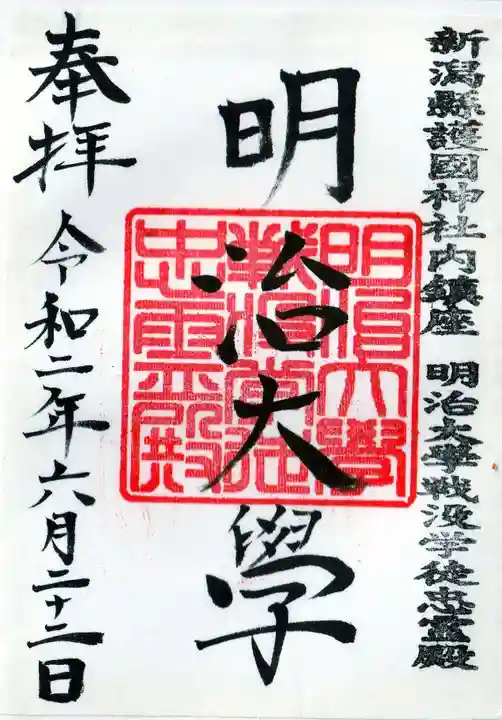 新潟縣護國神社内鎮座 明治大學戦没学徒忠霊殿
明治大學
明治大學
戦没学徒
忠霊殿
奉拝
令和二年六月二十二日